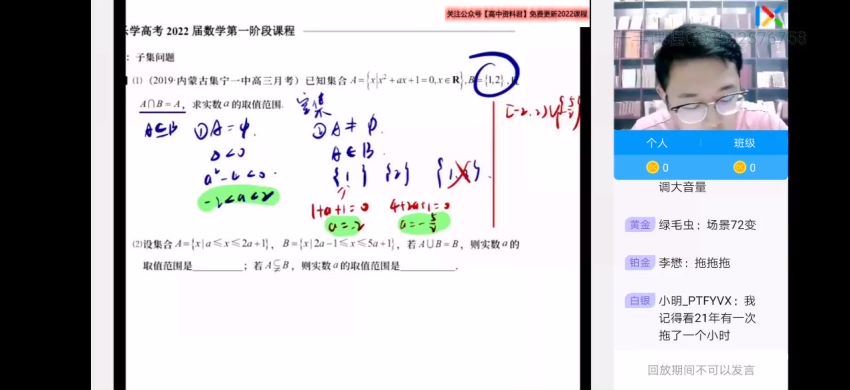 关注公众号【高中资料君】免费更新2022课程
乐学高考 2022 届数学第一阶段课程
：子集问题
(1) (2019·内蒙古集宁一中高三月考) 已知集合 A={x|x²+ax+1=0,x∈R}, B={1,2},
A∩B=A，求实数a的取值范围.
空集
[-2,2)∪{
A⊆B ①A=φ. ②A≠φ.
Δ<0 A⊆B.
a²-4<0. {1} {2} {1,2}.
-2<a<2 1+a+1=0 4+2a+1=0
a=-2 a=-5/2
(2)设集合 A={x|a≤x≤2a+1}，B={x|2a-1≤x≤5a+1}，若 A∪B=B，则实数a的
取值范围是________；若 A⫋B，则实数a的取值范围是________.
个人 班级
0 0
调大音量
黄金 绿毛虫：场景72变
铂金 李懋：拖拖拖
白银 小明_PTFYVX：我
记得看21年有一次
拖了一个小时
回放期间不可以发言